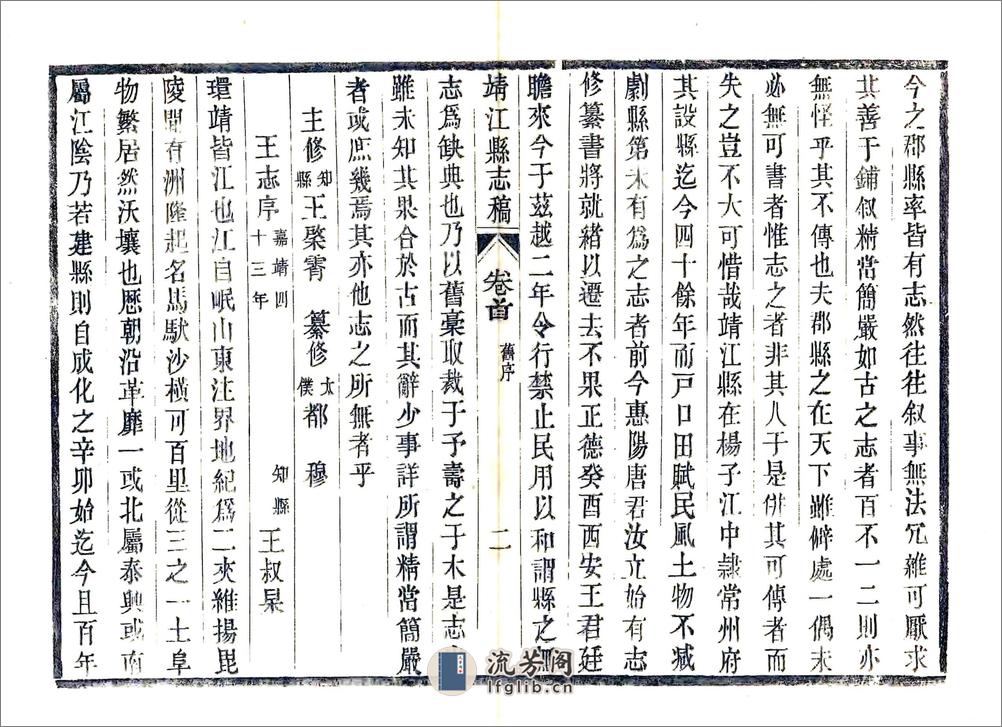 今之郡縣率皆有志然往往叙事無法冗雜可厭求
其善于鋪叙精當簡嚴如古之志者百不一二則亦
無怪乎其不傳也夫郡縣之在天下雖僻處一偶未
必無可書者惟志之者非其人于是併其可傳者而
失之豈不大可惜哉靖江縣在楊子江中隷常州府
其設縣迄今四十餘年而戸口田賦民風土物不减
劇縣第未有爲之志者前令惠陽唐君汝立始有志
修纂書將就緒以遷去不果正德癸酉西安王君廷
瞻來令于茲越二年令行禁止民用以和謂縣之無
靖江縣志稿 卷首 舊序 二
志爲缺典也乃以舊稾取裁于予壽之于木是志
雖未知其果合於古而其辭少事詳所謂精當簡嚴
者或庶幾焉其亦他志之所無者乎
主修知縣王棨霄 纂修太僕都穆
王志序嘉靖四十三年 知縣王叔杲
環靖皆江也江自岷山東注界地紀爲二夾維揚毘
陵間有洲隆起名馬馱沙橫可百里從三之一土阜
物繁居然沃壤也歷朝沿革靡一或北屬泰興或南
屬江陰乃若建縣則自成化之辛卯始迄今且百年
流芳閣
lfglib.cn